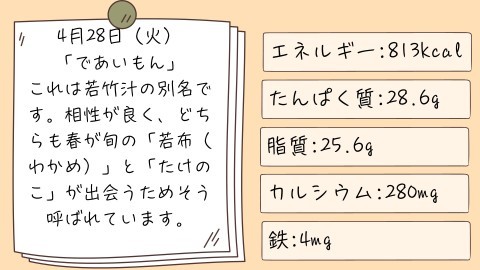 4月28日（火）
「であいもん」
これは若竹汁の別名で
す。相性が良く、どち
らも春が旬の「若布（
わかめ）」と「たけの
こ」が出会うためそう
呼ばれています。
エネルギー:813kcal
たんぱく質:28.6g
脂質:25.6g
カルシウム:280mg
鉄:4mg